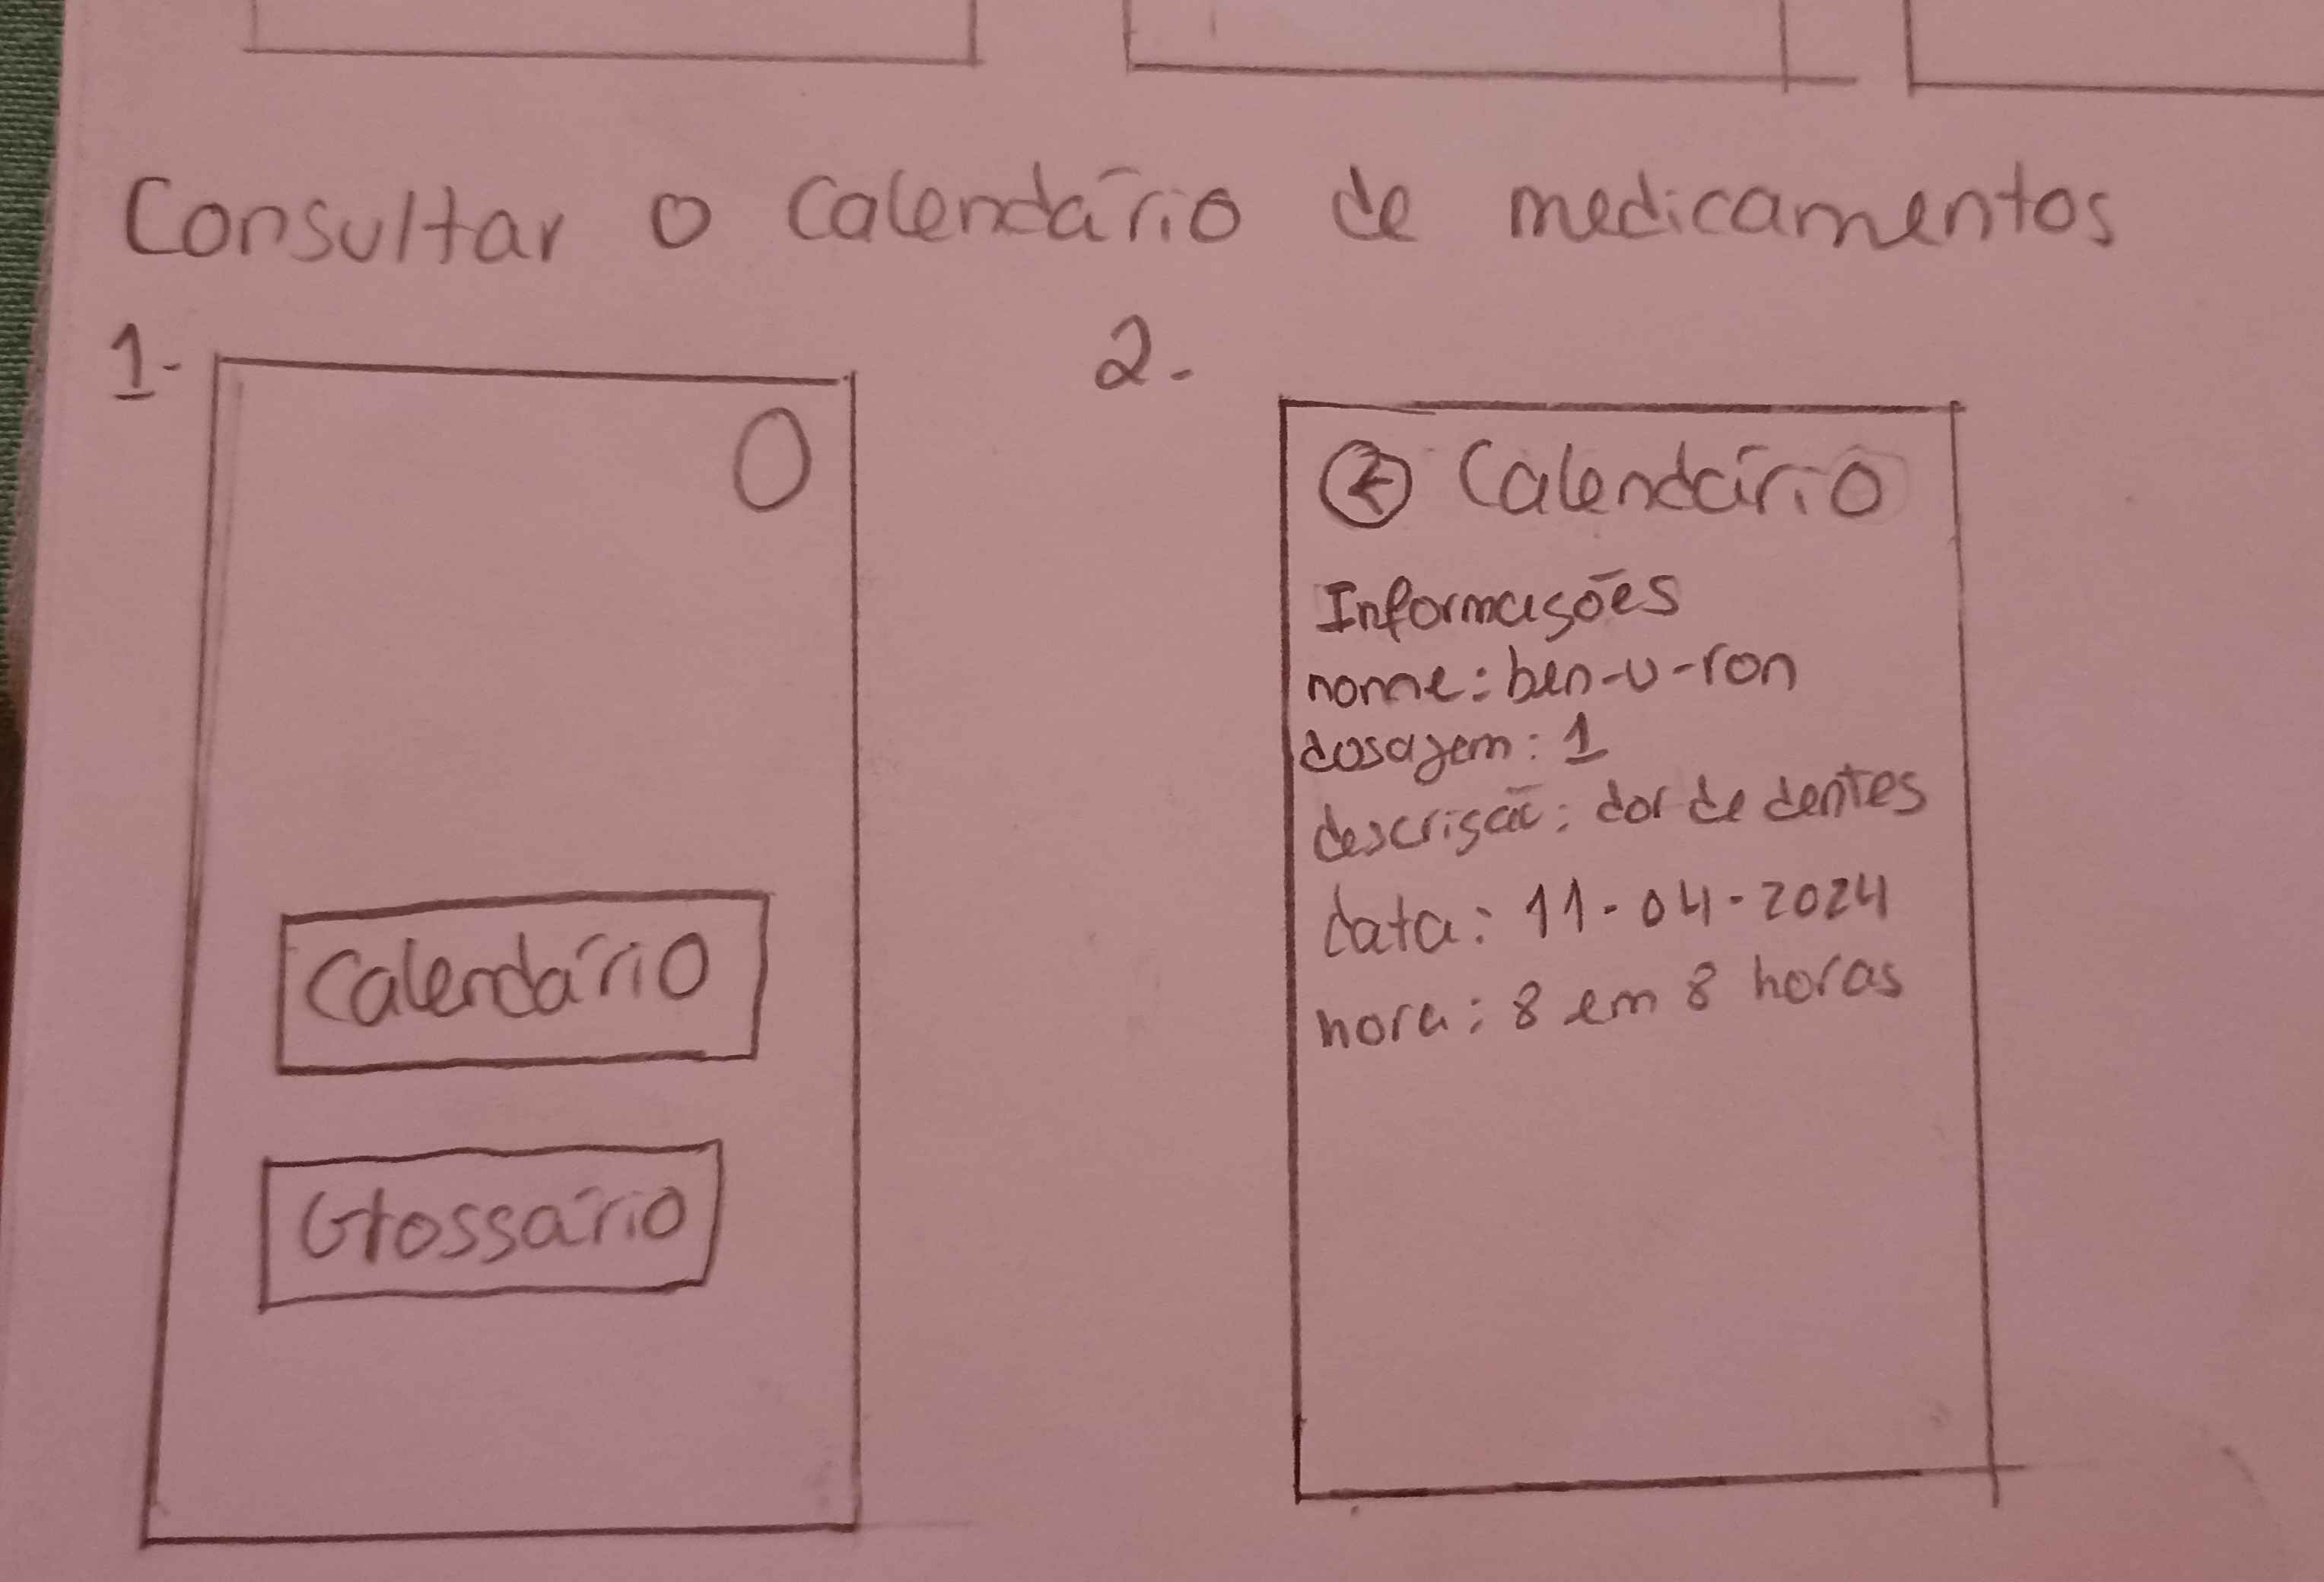 Consultar o Calendário de medicamentos
1-
Calendário
Glossário
2.
← Calendário
Informações
nome: ben-u-ron
dosagem: 1
descrição: dor de dentes
data: 11-04-2024
hora: 8 em 8 horas